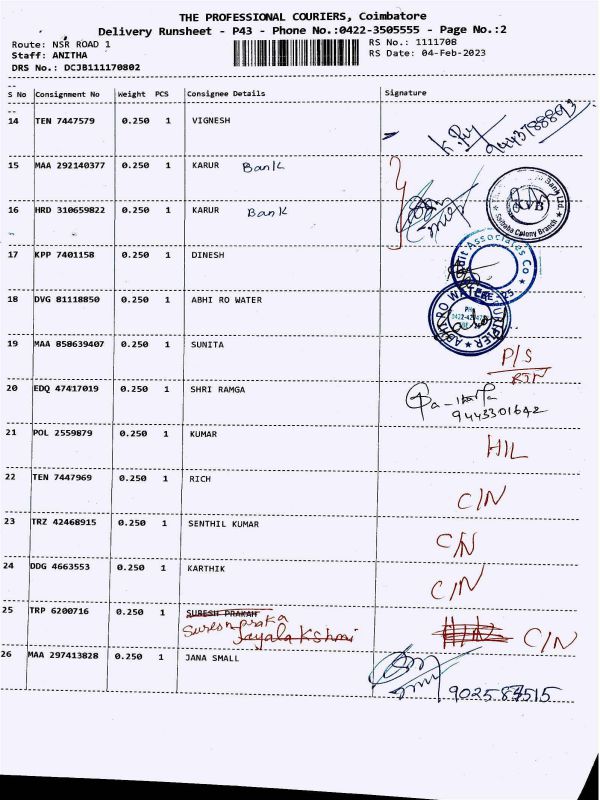 THE PROFESSIONAL COURIERS, Coimbatore
Delivery Runsheet - P43 - Phone No.:0422-3505555 - Page No.:2
Route: NSR ROAD 1
RS No.: 1111708
Staff: ANITHA
RS Date: 04-Feb-2023
DRS No.: DCJB111170802
S No Consignment No Weight PCS Consignee Details Signature
14 TEN 7447579 0.250 1 VIGNESH
15 MAA 292140377 0.250 1 KARUR Bank
16 HRD 310659822 0.250 1 KARUR Bank
KVB
Saibaba Colony Branch
17 KPP 7401158 0.250 1 DINESH
Associates
18 DVG 81118850 0.250 1 ABHI RO WATER
19 MAA 850639407 0.250 1 SUNITA P/S
20 EDQ 47417019 0.250 1 SHRI RAMGA
9443301642
21 POL 2559879 0.250 1 KUMAR H/L
22 TEN 7447969 0.250 1 RICH C/N
23 TRZ 42468915 0.250 1 SENTHIL KUMAR C/N
24 DDG 4663553 0.250 1 KARTHIK C/N
25 TRP 6200716 0.250 1 SURESH PRAKAH
Jayala Kshmi C/N
26 MAA 297413828 0.250 1 JANA SMALL